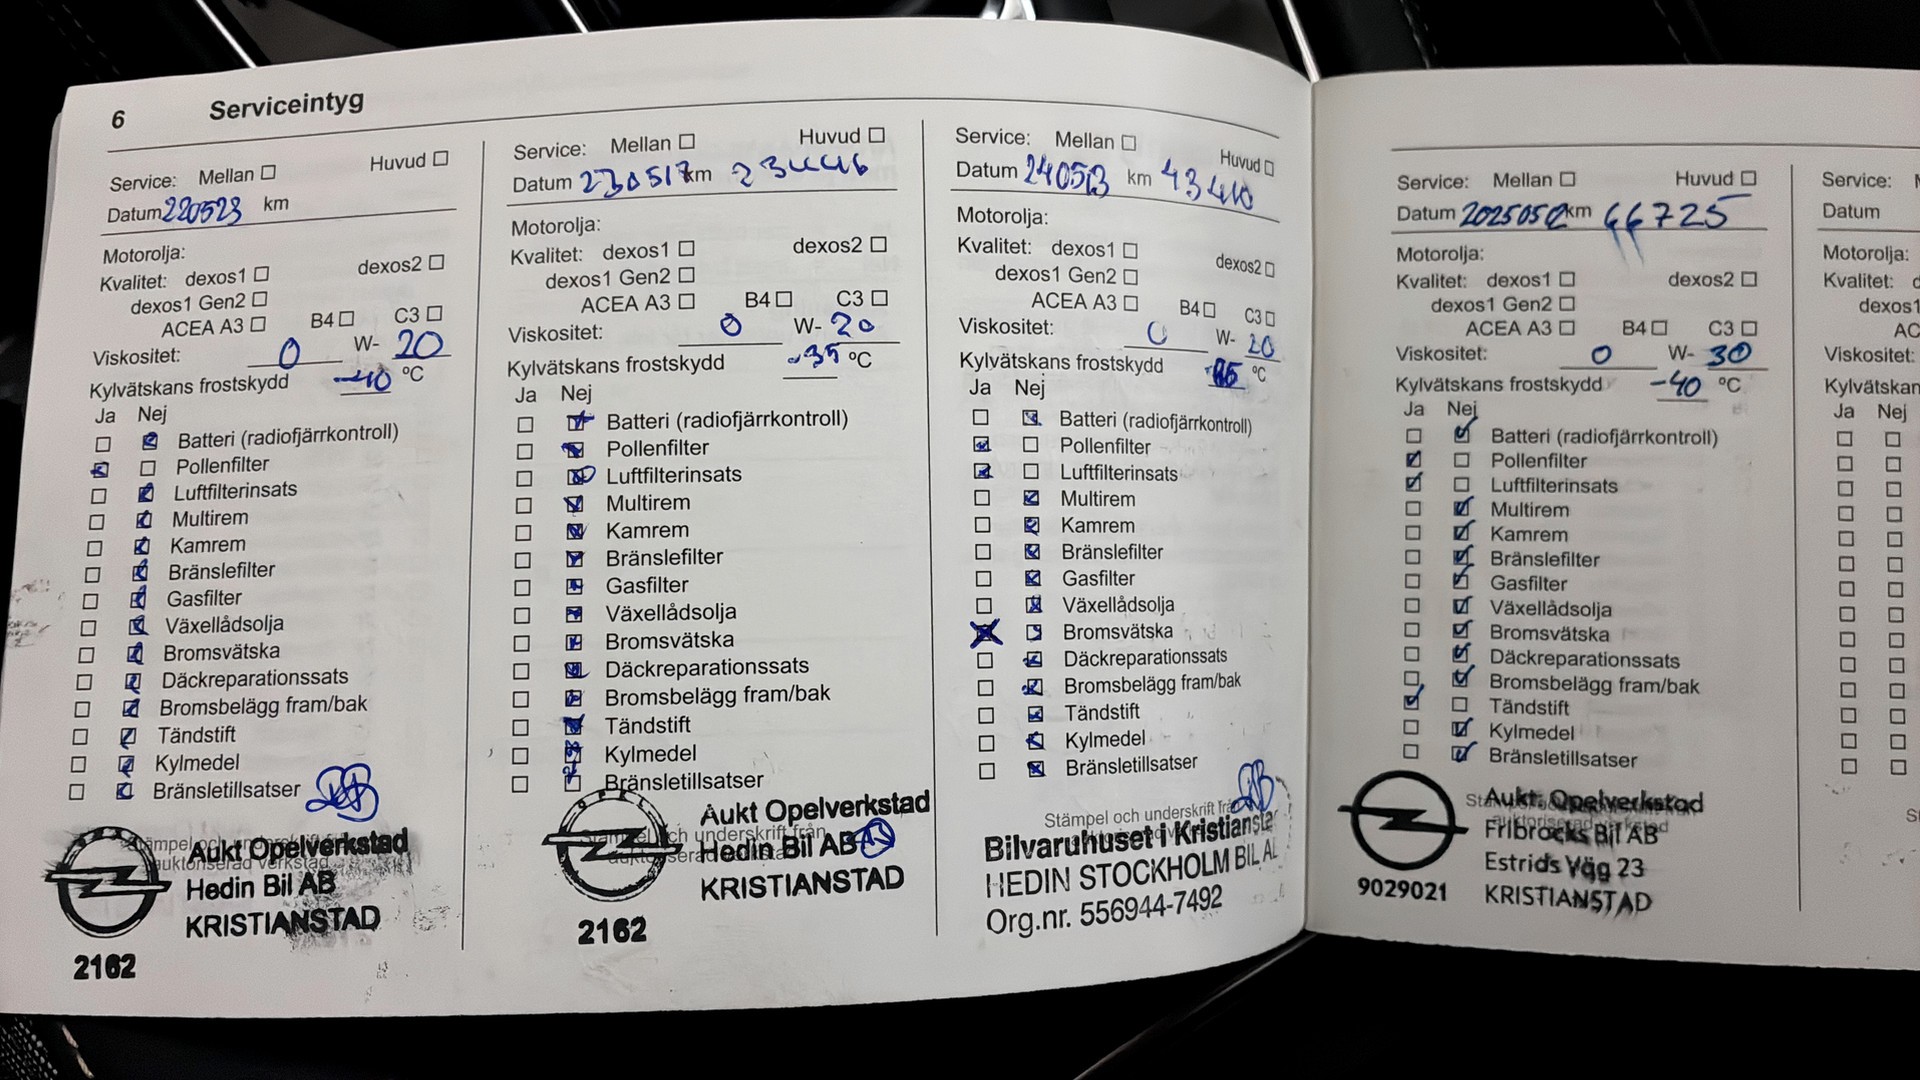 6 Serviceintyg
Service: Mellan ☐ Huvud ☐
Datum 220523 km
Motorolja:
Kvalitet: dexos1 ☐ dexos2 ☐
dexos1 Gen2 ☐
ACEA A3 ☐ B4 ☐ C3 ☐
Viskositet: 0 W- 20
Kylvätskans frostskydd -40 °C
Ja Nej
Batteri (radiofjärrkontroll)
Pollenfilter
Luftfilterinsats
Multirem
Kamrem
Bränslefilter
Gasfilter
Växellådsolja
Bromsvätska
Däckreparationssats
Bromsbelägg fram/bak
Tändstift
Kylmedel
Bränsletillsatser
Stämpel och underskrift från
auktoriserad verkstad
Aukt Opelverkstad
Hedin Bil AB
KRISTIANSTAD
2162
Service: Mellan ☐ Huvud ☐
Datum 230517 km 23446
Motorolja:
Kvalitet: dexos1 ☐ dexos2 ☐
dexos1 Gen2 ☐
ACEA A3 ☐ B4 ☐ C3 ☐
Viskositet: 0 W- 20
Kylvätskans frostskydd -35 °C
Ja Nej
Batteri (radiofjärrkontroll)
Pollenfilter
Luftfilterinsats
Multirem
Kamrem
Bränslefilter
Gasfilter
Växellådsolja
Bromsvätska
Däckreparationssats
Bromsbelägg fram/bak
Tändstift
Kylmedel
Bränsletillsatser
OPEL
Stämpel och underskrift från
auktoriserad verkstad
Aukt Opelverkstad
Hedin Bil AB
KRISTIANSTAD
2162
Service: Mellan ☐ Huvud ☐
Datum km 43410
Motorolja:
Kvalitet: dexos1 ☐ dexos2 ☐
dexos1 Gen2 ☐
ACEA A3 ☐ B4 ☐ C3 ☐
Viskositet: 0 W- 20
Kylvätskans frostskydd °C
Ja Nej
Batteri (radiofjärrkontroll)
Pollenfilter
Luftfilterinsats
Multirem
Kamrem
Bränslefilter
Gasfilter
Växellådsolja
Bromsvätska
Däckreparationssats
Bromsbelägg fram/bak
Tändstift
Kylmedel
Bränsletillsatser
Stämpel och underskrift från
auktoriserad verkstad
Bilvaruhuset i Kristiansta
HEDIN STOCKHOLM BIL A
Org.nr. 556944-7492
Service: Mellan ☐ Huvud ☐
Datum 20250502 km 66725
Motorolja:
Kvalitet: dexos1 ☐ dexos2 ☐
dexos1 Gen2 ☐
ACEA A3 ☐ B4 ☐ C3 ☐
Viskositet: 0 W- 30
Kylvätskans frostskydd -40 °C
Ja Nej
Batteri (radiofjärrkontroll)
Pollenfilter
Luftfilterinsats
Multirem
Kamrem
Bränslefilter
Gasfilter
Växellådsolja
Bromsvätska
Däckreparationssats
Bromsbelägg fram/bak
Tändstift
Kylmedel
Bränsletillsatser
Aukt Opelverkstad
Fribrocks Bil AB
Estrids Väg 23
KRISTIANSTAD
9029021
Service:
Datum
Motorolja:
Kvalitet:
dexos1
AC
Viskositet:
Kylvätskan
Ja Nej